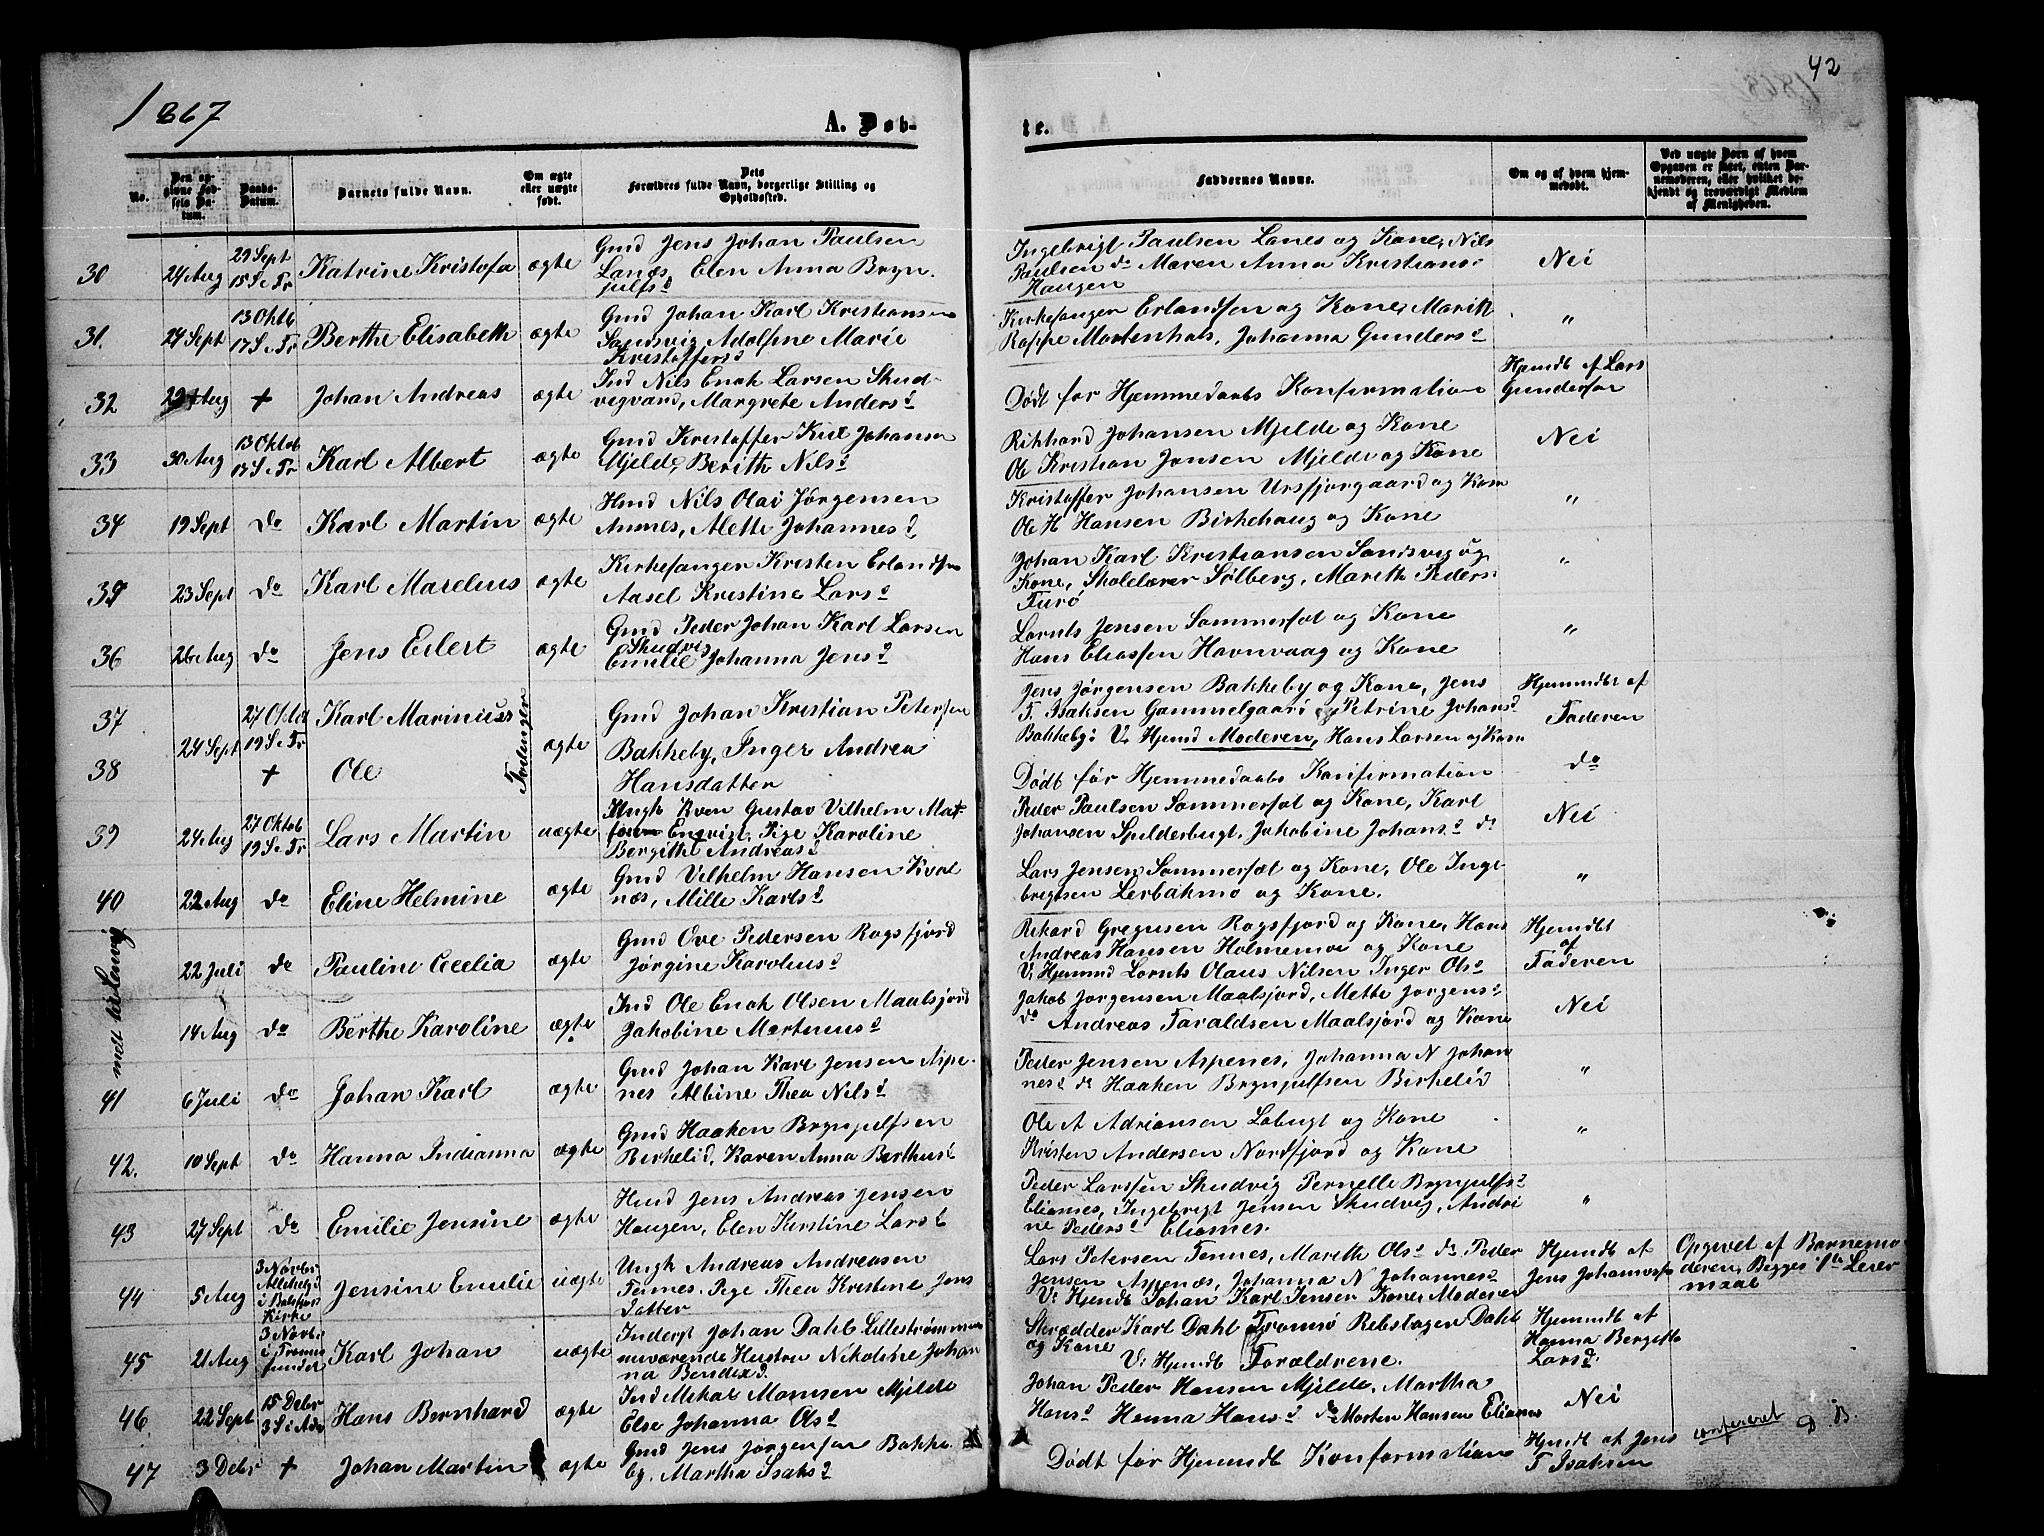 42
1867
A. Døb-
te.
No.
Den opgivne Fødsels Datum.
Daabs-Datum.
Barnets fulde Navn.
Om ægte eller uægte født.
Dets Forældres fulde Navn, borgerlige Stilling og Opholdssted.
Faddernes Navne.
Om og af hvem hjemmedøbt.
Ved uægte Børn af hvem Opgaven er skeet, enten Barnemoderen, eller hvilket bekjendt og troværdigt Medlem af Menigheden.
30 24 Aug 29 Sept 15 S e Tr Katrine Kristofa ægte
Gmd Jens Johan Paulsen
Lanæs, Elen Anna Bryn
julfsd
Ingebrigt Paulsen Lanes og Kone, Nils
Paulsen do Maren Anna Kristians
Haugen
Nei
31. 24 Sept 13 Oktb 17 S e Tr Berthe Elisabeth ægte
Gmd Johan Karl Kristiansen
Sandsvig Adolfine Marie
Kristoffersd
Kirkesanger Erlandsen og Kone, Marith
Roppe Mortenhals, Johanna Gundersd
"
32 29 Aug + Johan Andreas ægte
Ind Nils Enok Larsen Skud
vigvard, Margrete Andersd
Dødt før Hjemmedaabs Konfirmation
Hjemdb af Lars
Gundersen
33 30 Aug 13 Oktob 17 S e Tr Karl Albert ægte
Gmd Kristoffer Johansen
Mjelde, Berith Nilsd
Rikhard Johansen Mjelde og Kone
Ole Kristian Jonsen Mjelde og Kone
Nei
34 19 Sept do Karl Martin ægte
Hmd Nils Olai Jørgensen
Annes, Alette Johannesd
Kristoffer Johansen Ursfjorgaard og Kone
Ole H Hansen Birkehaug og Kone
"
35 23 Sept do Karl Marelius ægte
Kirkesanger Kristen Erlandsen
Aasel Kristine Larsd
Johan Karl Kristiansen Sandsvig og
Kone, Skolelærer Sølberg, Marith Peders
Furø
"
36 26 Aug do Jens Eilert ægte
Gmd Peder Johan Karl Larsen
Skudvig
Emilie Johanna Jensd
Lornts Jensen Sommersæt og Kone
Hans Eliassen Havnvaag og Kone
"
37 24 Sept 27 Oktb 19 S e Tr Karl Marinius
Tvillinger
ægte
Gmd Johan Kristian Petersen
Bakkeby, Inger Andrea
Hansdatter
Jens Jørgensen Bakkeby og Kone, Jens
T. Isaksen Gammelgaard, Petrine Johansd
Bakkeby: V. Hjemd Moderen, Hans Larsen og Kone
Hjemmdbt af
Faderen
38 + Ole
Dødt før Hjemmedaabs Konfirmation
do
39 24 Aug 27 Oktob 19 S e Tr Lars Martin uægte
Ungk Kven Gustav Vilhelm Mat
Enqvist, Pige Karoline
Bergithe Andreasd
Peder Paulsen Sommersæt og Kone, Karl
Johansen Spilderbugt, Jakobine Johansd do
Nei
40 22 Aug do Eline Helmine ægte
Gmd Vilhelm Hansen Kval
næs, Mille Karlsd
Lars Jensen Sommersæt og Kone, Ole Inge
brigtsen Lerbakmo og Kone.
"
mdt til Lenvig
22 Juli do Pauline Cecelia ægte
Gmd Ove Pedersen Rogsfjord
Jørgine Karoliusd
Rikard Gregusen Rogsfjord og Kone, Hans
Andreas Hansen Holmemoe og Kone
V. Hjemmd Lornts Olaus Nilsen Inger Olsd
Hjemdbt
af
Faderen
14 Aug do Berthe Karoline ægte
Ind Ole Enok Olsen Maalsjord
Jakobine Martinusd
Jakob Jørgensen Maalsjord, Mette Jørgensd
do Andreas Taraldsen Maalsjord og Kone
Nei
41 6 Juli do Johan Karl ægte
Gmd Johan Karl Jensen Aspe
nes Albine Thea Nilsd
Peder Jensen Aspenes, Johanna N Johan
nesd do Haaken Brynjulfsen Birkelid
"
42. 10 Sept do Hanna Indianna ægte
Gmd Haaken Brynjulfsen
Birkelid, Karen Anna Berthusd
Ole A Adriansen Løbugt og Kone
Kristen Andersen Nordfjord og Kone
"
43 27 Sept do Emilie Jensine ægte
Hmd Jens Andreas Jensen
Haugen, Elen Kirstine Larsd
Peder Larssen Skudvig Pernelle Brynjulfsd
Elianes, Ingebrigt Jensen Skudvig, Andri
ne Pedersd Elianes.
"
44 5 Aug 3 Novbr Allehelgd i Balsfjord Kirke Jensine Emilie uægte
Ungk Andreas Andreasen
Tennes, Pige Thea Kristine Jens
Datter
Lars Petersen Tennes, Marith Olsd do, Peder
Jensen Aspenæs, Johanna N Johannesd
V. Hjemdb Johan Karl Jensen Kone, Moderen
Hjemdb af
Jens Johannesen
Opgivet af Barnemo
deren, Begges 1te Leier
maal
45 21 Aug 3 Novbr i Tromsøsundet Karl Johan uægte
Inderst Johan Dahl Lillestrømmen
nuværende Hustru Nikoline Johan
na Bendixd.
Skrædder Karl Dahl Tromsø Rebslager Dahl
og Kone
V. Hjemdb Forældrene.
Hjemmdb af
Hanna Bergithe
Larsd.
46. 22 Sept 15 Debr 3 S i Adv Hans Bernhard ægte
Ind Mikal Monsen Mjelde
Else Johanna Olsd
Johan Peder Hansen Mjelde, Martha
Hansd Hanna Hansd do Morten Hansen Elianes
Nei
47 3 Debr + Johan Martin ægte
Gmd Jens Jørgensen Bakke
by, Martha Isaksd
Dødt før Hjemmdb Konformatione
Hjmdb af Jens
T Isaksen
confereret D. B.